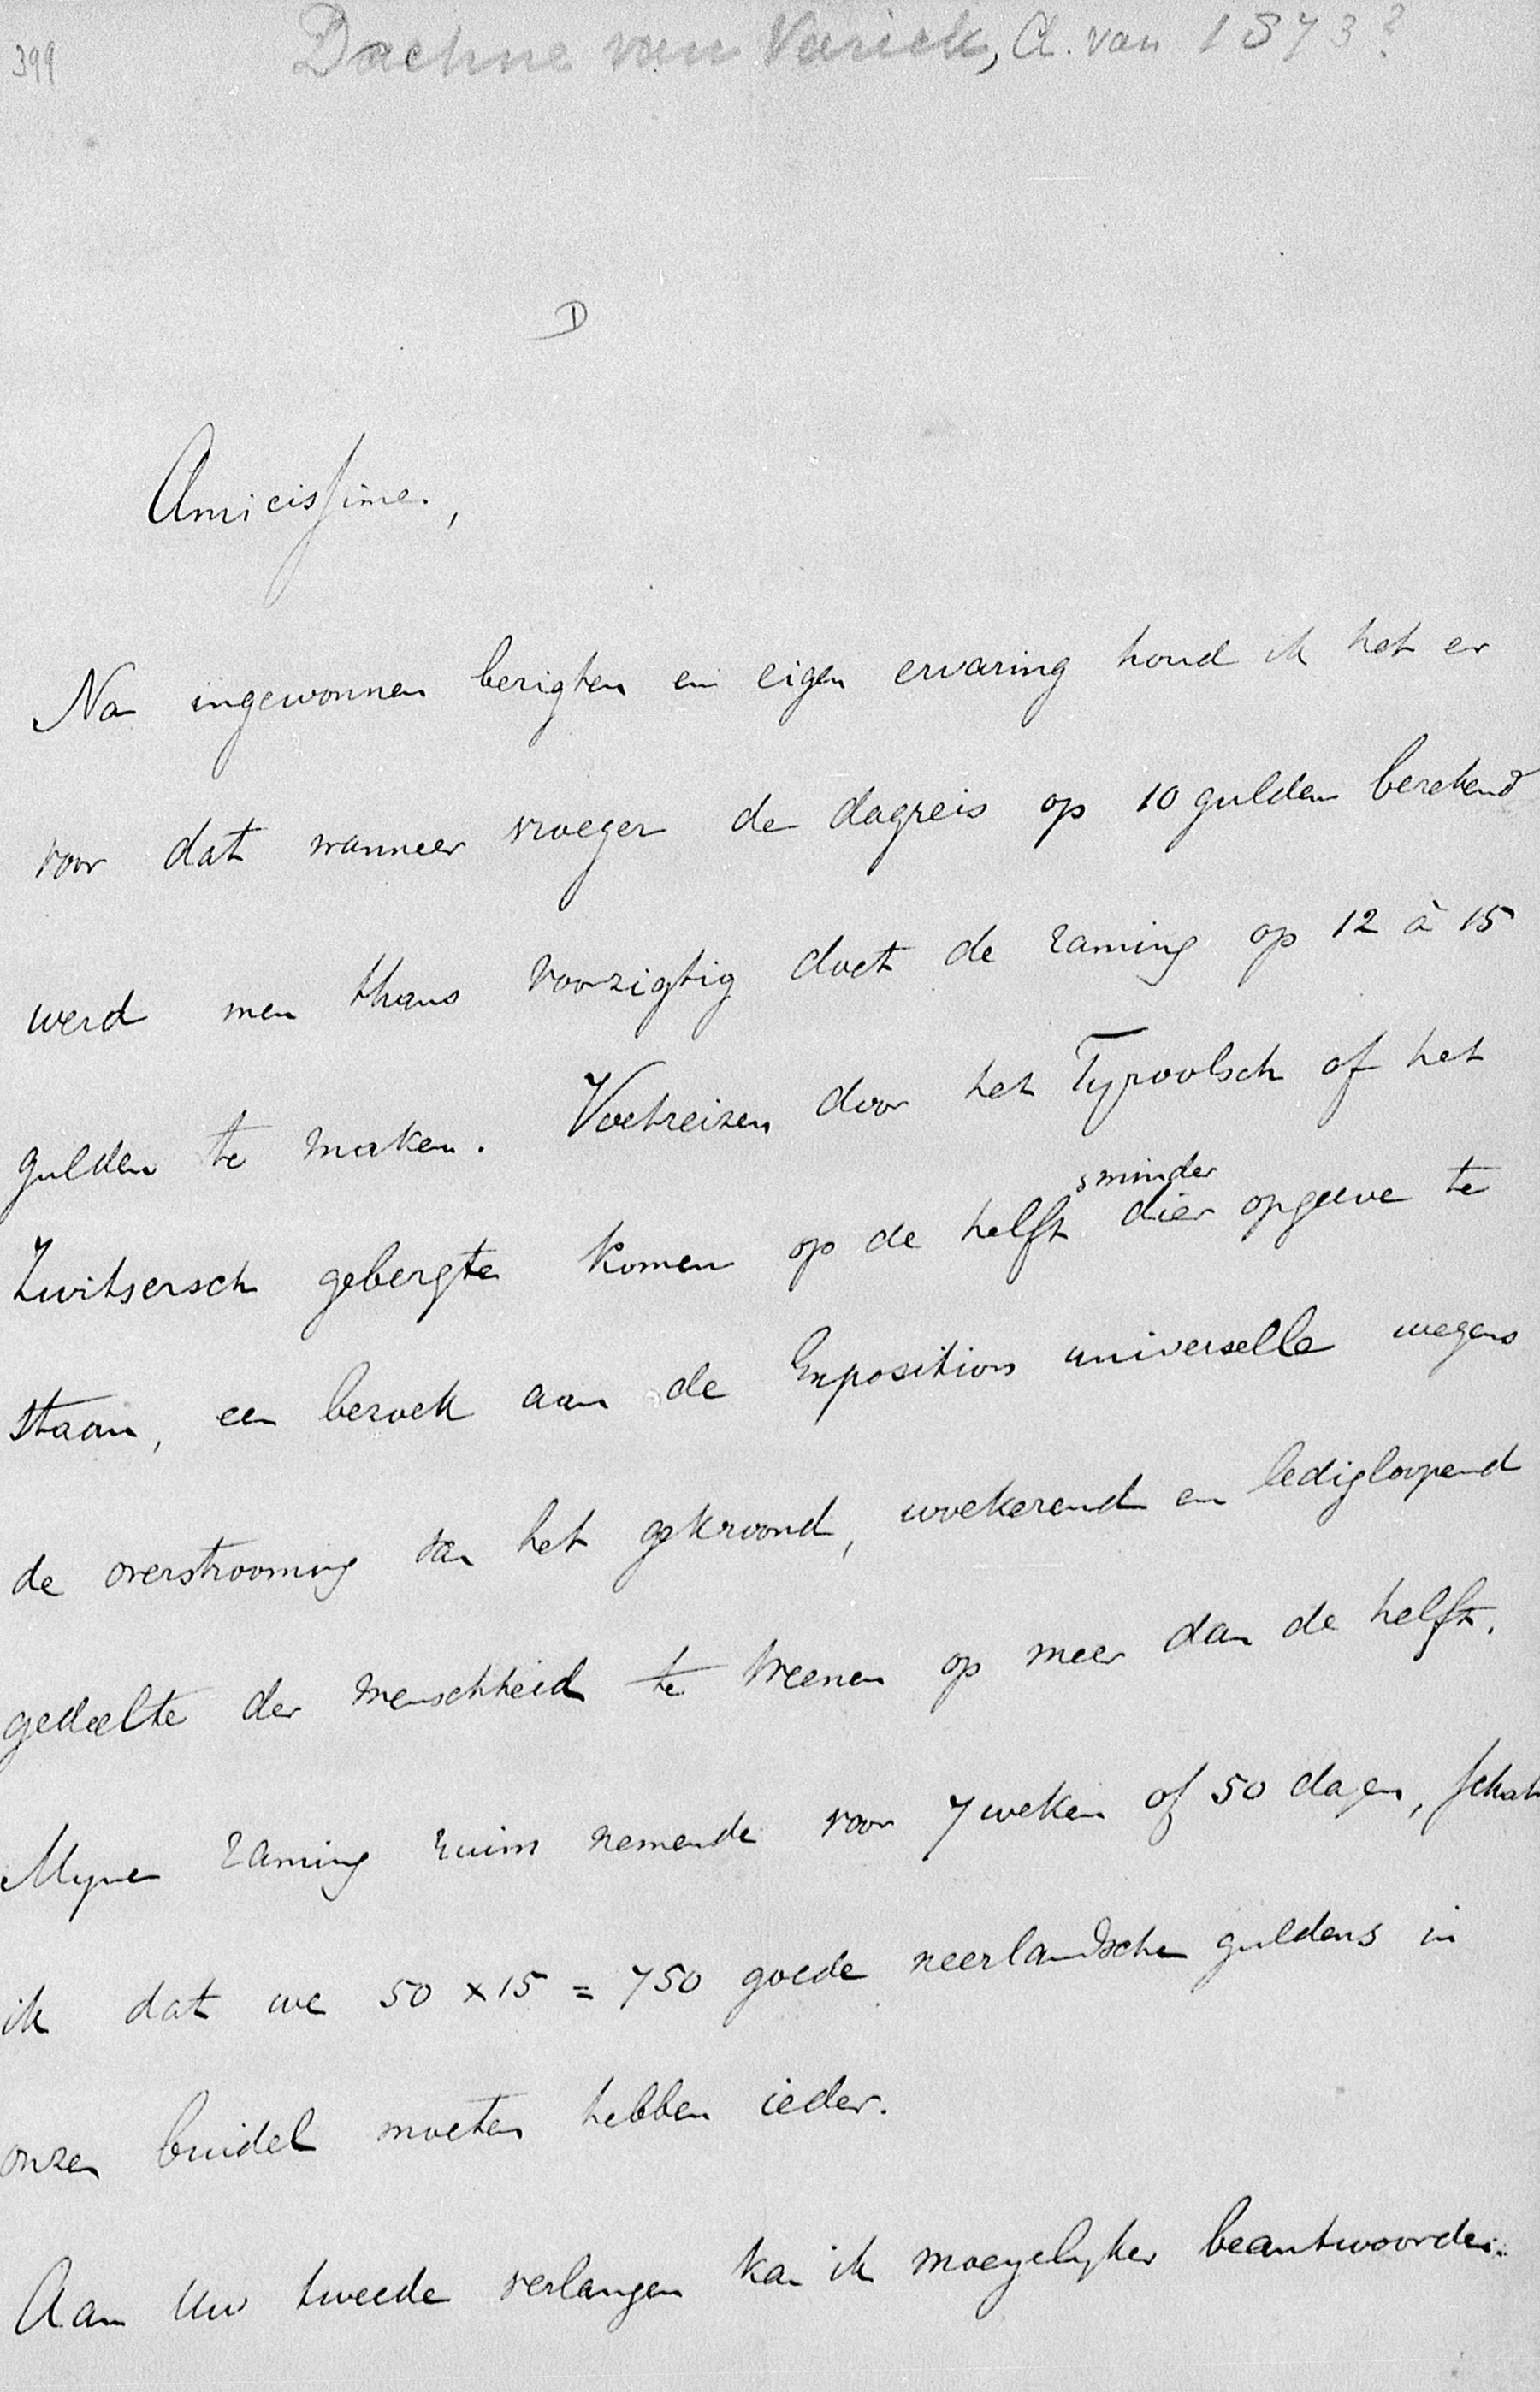 399
Daehne van Varick, A. van 1873?
D
Amicissime,
Na ingewonnen berigten en eigen ervaring houd ik het er
voor dat wanneer vroeger de dagreis op 10 gulden berekend
werd men thans voorzigtig doet de raming op 12 à 15
gulden te maken. Voetreizen door het Tyroolsch of het
minder
Zwitsersch gebergte komen op de helft dier opgave te
staan, een bezoek aan de Exposition universelle wegens
de overstrooming van het gekroond, woekerend en ledigloopend
gedeelte der menschheid te Weenen op meer dan de helft.
Myne raming ruim nemende voor 7 weken of 50 dagen, schat
ik dat we 50 x 15 = 750 goede neerlandsche guldens in
onzen buidel moeten hebben ieder.
Aan Uw tweede verlangen kan ik moeyelyker beantwoorden.